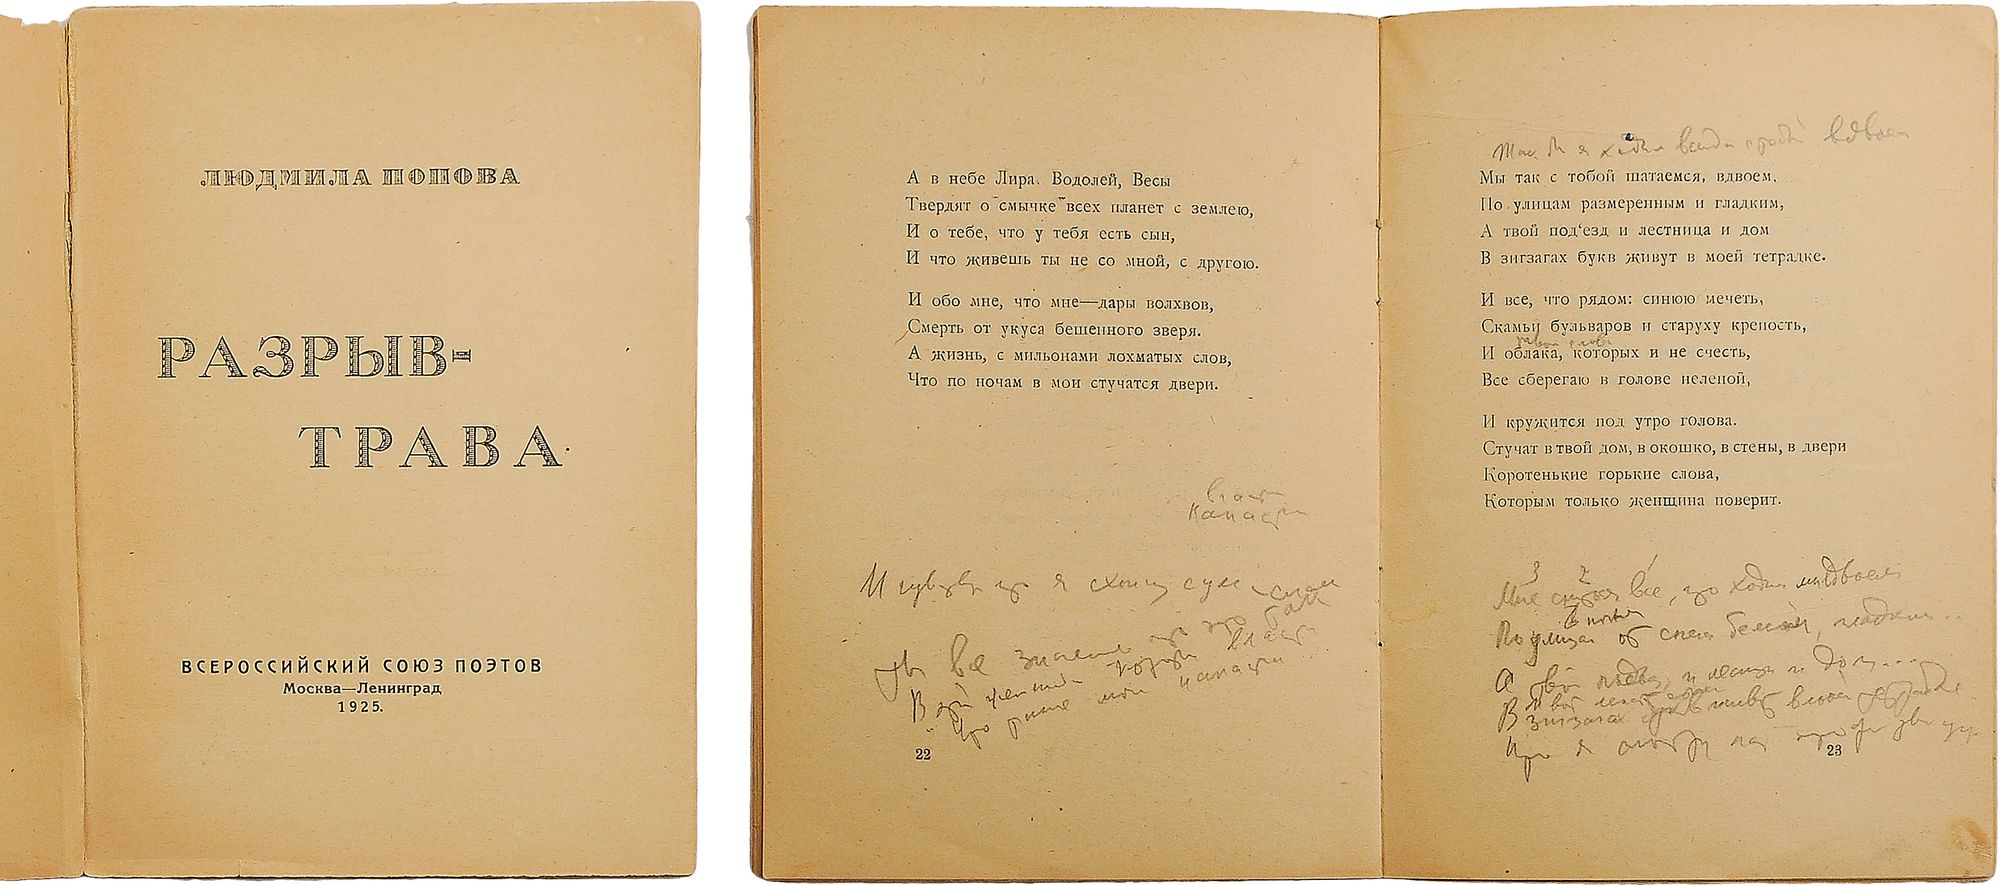 ЛЮДМИЛА ПОПОВА
РАЗРЫВ-
ТРАВА
ВСЕРОССИЙСКИЙ СОЮЗ ПОЭТОВ
Москва—Ленинград
1925.
А в небе Лира, Водолей, Весы
Твердят о "смычке" всех планет с землею,
И о тебе, что у тебя есть сын,
И что живешь ты не со мной, с другою.
И обо мне, что мне—дары волхвов,
Смерть от укуса бешенного зверя.
А жизнь, с мильонами лохматых слов,
Что по ночам в мои стучатся двери.
власти
напасти
И я схожу с ума
Ты все
В власти
Что мои напасти
22
я ходил всегда с тобой вдвоем
Мы так с тобой шатаемся, вдвоем,
По улицам размеренным и гладким,
А твой под'езд и лестница и дом
В зигзагах букв живут в моей тетрадке.
И все, что рядом: синюю мечеть,
Скамьи бульваров и старуху крепость,
И облака, которых и не счесть,
Все сберегаю в голове нелепой,
И кружится под утро голова.
Стучат в твой дом, в окошко, в стены, в двери
Коротенькие горькие слова,
Которым только женщина поверит.
3 2
Мне все, что ходим мы вдвоем
По улицам от снега белым, гладким..
А твой подъезд и лестница и дом...
В зигзагах букв живут в моей тетрадке
Что я
23